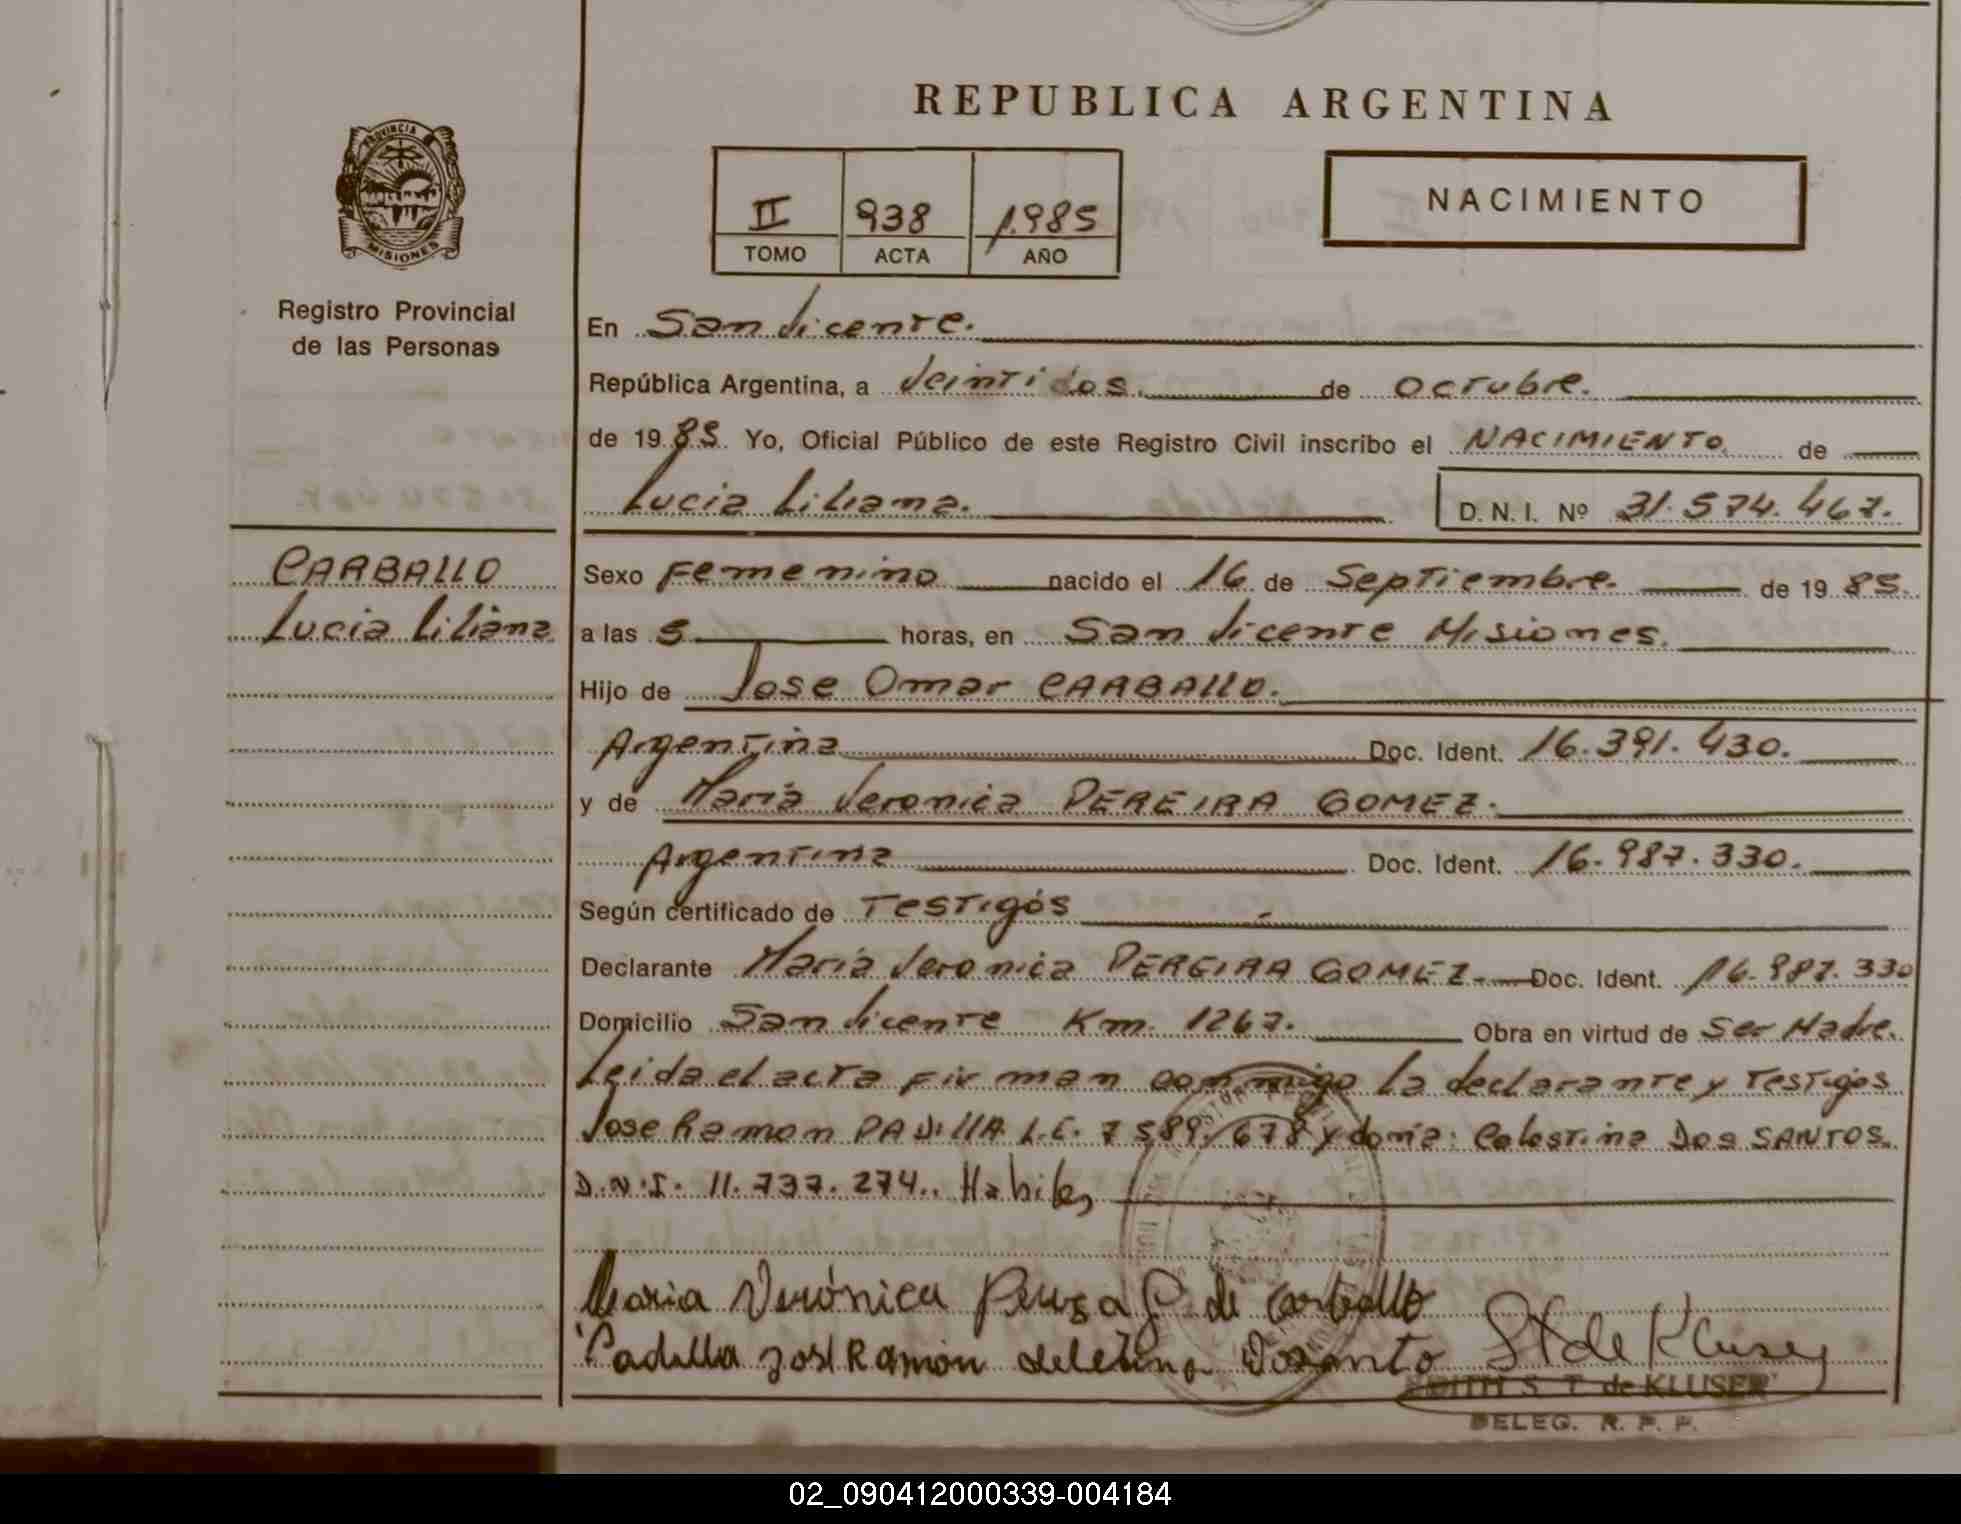 REPUBLICA ARGENTINA
PROVINCIA
MISIONES
Registro Provincial
de las Personas
II 938 1.985
TOMO ACTA AÑO
NACIMIENTO
En San Vicente.
República Argentina, a Veintidos. de Octubre.
de 19 85 Yo, Oficial Público de este Registro Civil inscribo el NACIMIENTO de
Lucia Liliana. D. N. I. Nº 31.574.467.
CARBALLO
Lucia Liliana
Sexo Femenino nacido el 16 de Septiembre. de 19 85.
a las 5 horas, en San Vicente Misiones.
Hijo de Jose Omar CARBALLO.
Argentina Doc. Ident. 16.391.430.
y de Maria Veronica PEREIRA GOMEZ.
Argentina Doc. Ident. 16.987.330.
Según certificado de Testigós
Declarante Maria Veronica PEREIRA GOMEZ. Doc. Ident. 16.987.330
Domicilio San Vicente Km. 1267. Obra en virtud de Ser Madre.
Leida el acta firman conmigo la declarante y Testigos
Jose Ramon PADILLA L.E. 7589.678 y doña: Celestina Dos SANTOS.
D.N.I. 11.737.274. Habiles
Maria Verónica Pereira G. de Carballo
Padilla José Ramon Selestina Dosanto St de Kluser
EDITH S. T. de KLUSER
DELEG. R. P. P.
02_090412000339-004184